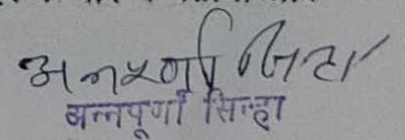 अन्नपूर्णा सिन्हा
अन्नपूर्णा सिन्हा